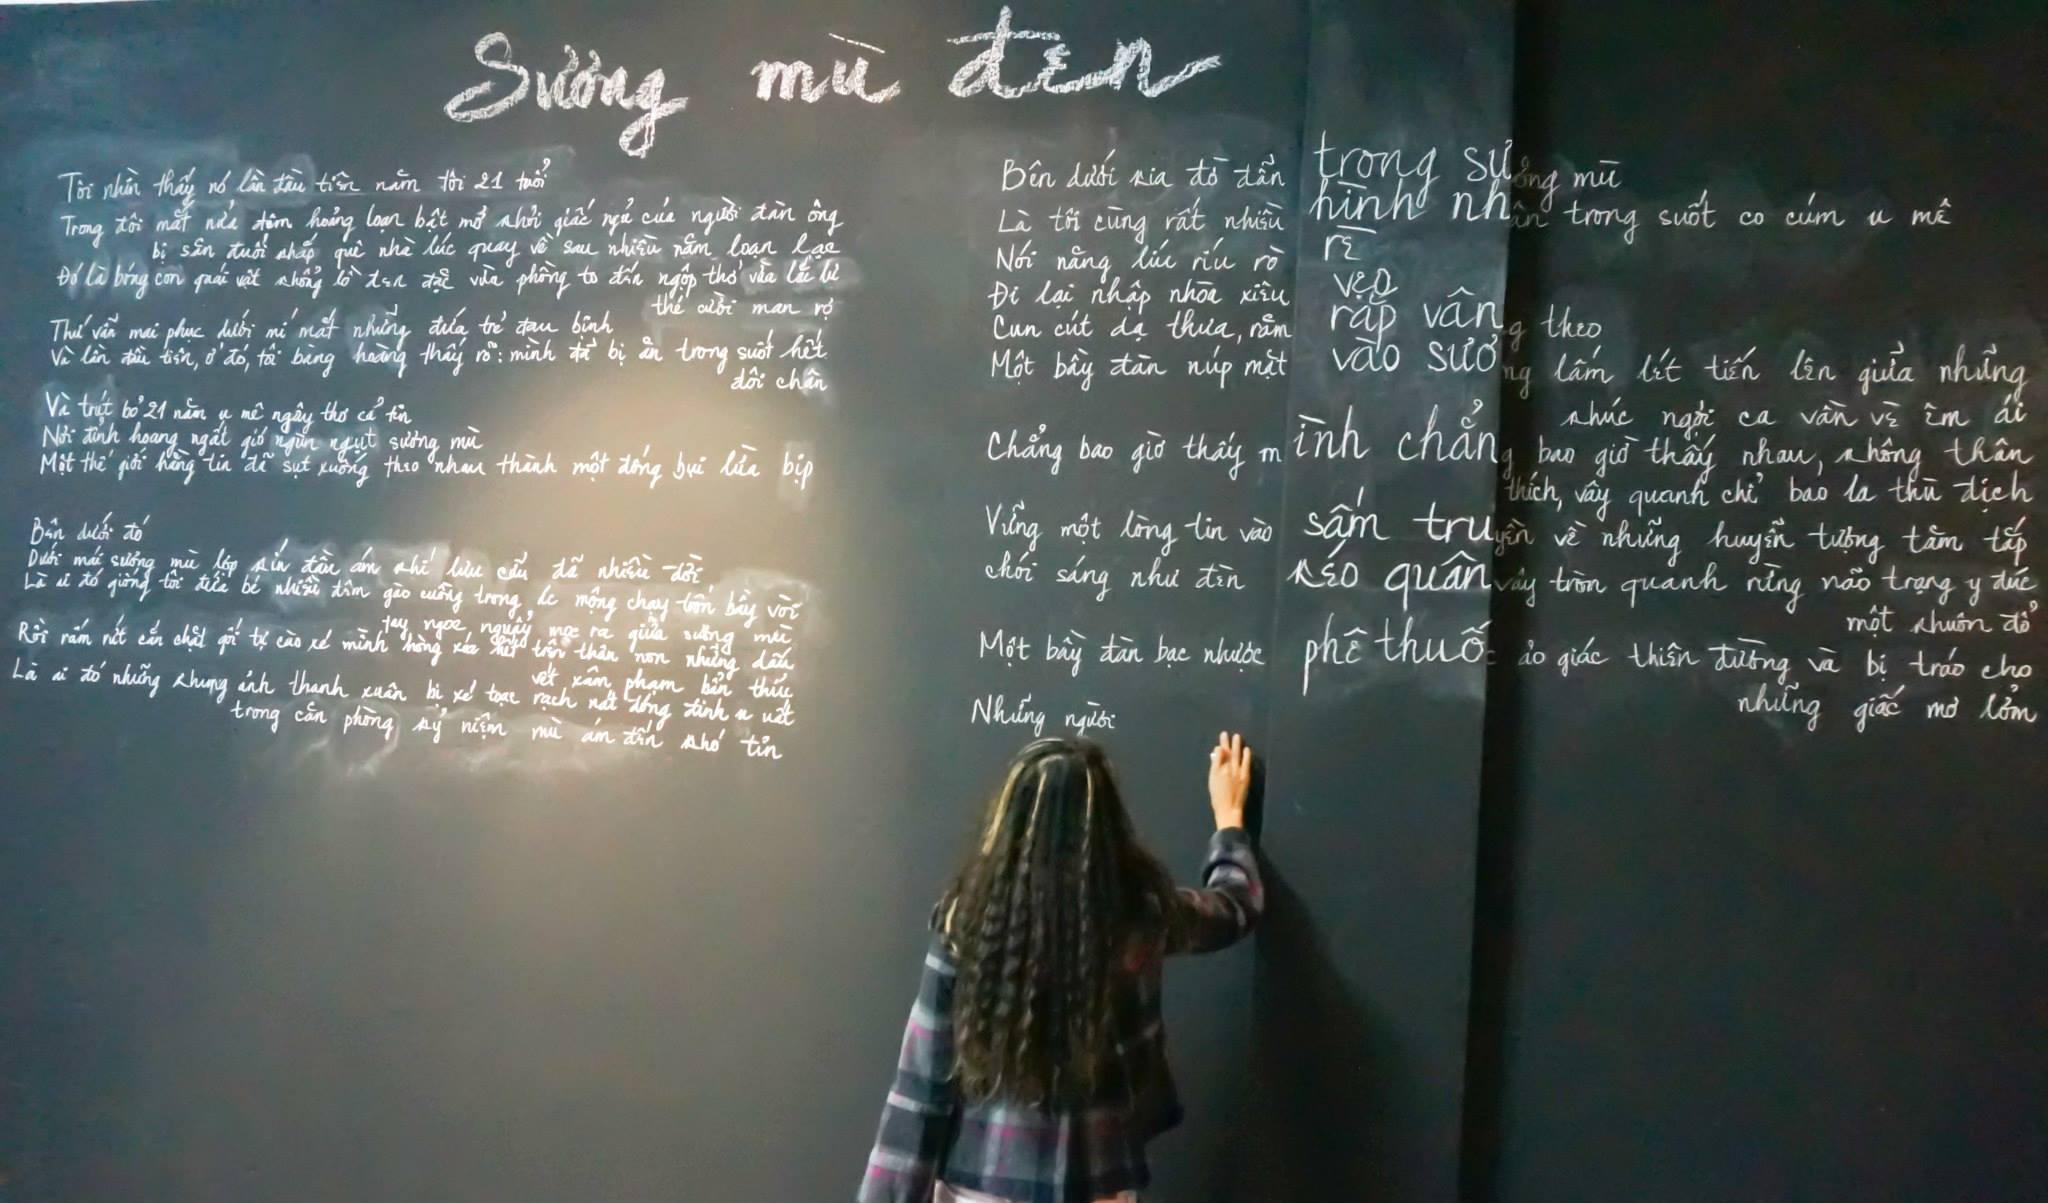 Sương mù đen
Tôi nhìn thấy nó lần đầu tiên năm tôi 21 tuổi
Trong đôi mắt nửa đêm hoảng loạn bật mở khỏi giấc ngủ của người đàn ông
bị săn đuổi khắp quê nhà lúc quay về sau nhiều năm loạn lạc
Đó là bóng con quái vật khổng lồ đen đặc vừa phồng to đến ngộp thở vừa lắc lư
thé cười man rợ
Thứ vẫn mai phục dưới mí mắt những đứa trẻ đau bệnh
Và lần đầu tiên, ở đó, tôi bàng hoàng thấy rõ: mình đã bị ăn trong suốt hết
đôi chân
Và trút bỏ 21 năm u mê ngây thơ cả tin
Nơi đỉnh hoang ngất gió ngùn ngụt sương mù
Một thế giới hằng tin đã sụt xuống theo nhau thành một đống bụi lừa bịp
Bên dưới đó
Dưới mái sương mù lớp kín đần ám khí lưu cẩu đã nhiều đời
Là ai đó giống tôi đứa bé nhiều đêm gào cuồng trong ác mộng chạy trốn bầy vòi
tay ngoe nguẩy mọc ra giữa sương mù
Rồi rấm rứt cắn chặt gối tự cào xé mình hòng xóa hết trên thân non những dấu
vết xâm phạm bẩn thỉu
Là ai đó những khung ảnh thanh xuân bị xé toạc rạch nát đóng đinh u uất
trong căn phòng kỷ niệm mù ám đến khó tin
Bên dưới kia đờ đẫn trong sương mù
Là tôi cùng rất nhiều hình nhân trong suốt co cúm u mê
Nói năng líu ríu rò rè
Đi lại nhập nhòa xiêu vẹo
Cun cút dạ thưa, răm rắp vâng theo
Một bầy đàn núp mặt vào sương lấm lét tiến lên giữa những
khúc ngợi ca vần vè êm ái
Chẳng bao giờ thấy mình chẳng bao giờ thấy nhau, không thân
thích, vây quanh chỉ bao la thù địch
Vững một lòng tin vào sấm truyền về những huyễn tượng tăm tắp
chói sáng như đèn kéo quân vây tròn quanh rừng não trạng y đúc
một khuôn đổ
Một bầy đàn bạc nhược phê thuốc ảo giác thiên đường và bị tráo cho
những giấc mơ lỏm
Những người